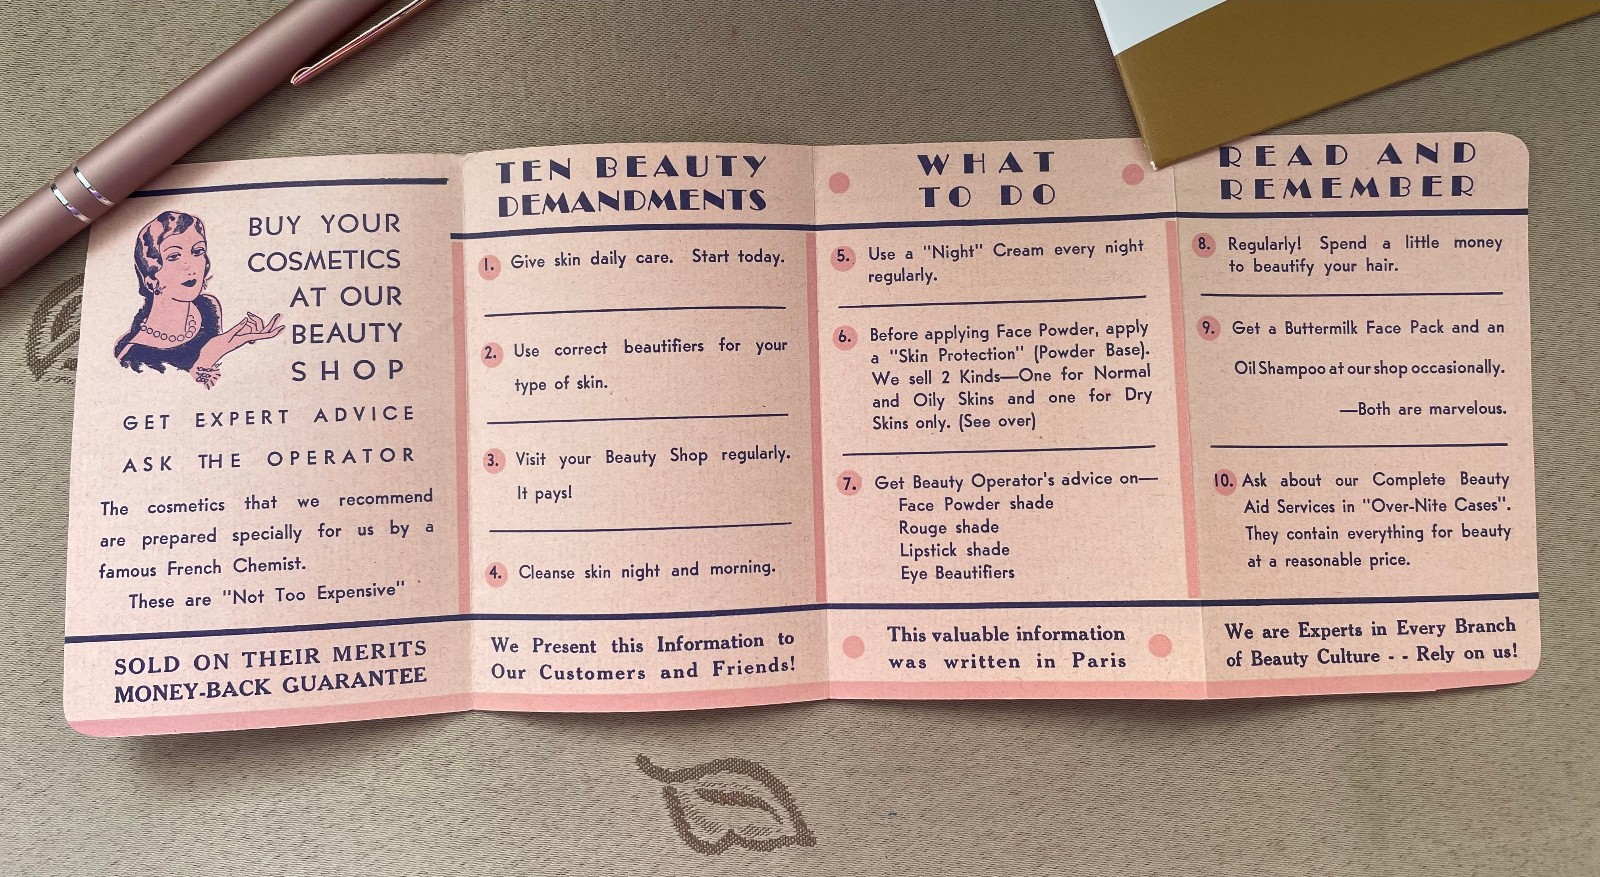 BUY YOUR
COSMETICS
AT OUR
BEAUTY
SHOP
GET EXPERT ADVICE
ASK THE OPERATOR
The cosmetics that we recommend
are prepared specially for us by a
famous French Chemist.
These are "Not Too Expensive"
SOLD ON THEIR MERITS
MONEY-BACK GUARANTEE
TEN BEAUTY
DEMANDMENTS
1. Give skin daily care. Start today.
2. Use correct beautifiers for your
type of skin.
3. Visit your Beauty Shop regularly.
It pays!
4. Cleanse skin night and morning.
We Present this Information to
Our Customers and Friends!
WHAT
TO DO
5. Use a "Night" Cream every night
regularly.
6. Before applying Face Powder, apply
a "Skin Protection" (Powder Base).
We sell 2 Kinds—One for Normal
and Oily Skins and one for Dry
Skins only. (See over)
7. Get Beauty Operator's advice on—
Face Powder shade
Rouge shade
Lipstick shade
Eye Beautifiers
This valuable information
was written in Paris
READ AND
REMEMBER
8. Regularly! Spend a little money
to beautify your hair.
9. Get a Buttermilk Face Pack and an
Oil Shampoo at our shop occasionally.
—Both are marvelous.
10. Ask about our Complete Beauty
Aid Services in "Over-Nite Cases".
They contain everything for beauty
at a reasonable price.
We are Experts in Every Branch
of Beauty Culture - - Rely on us!